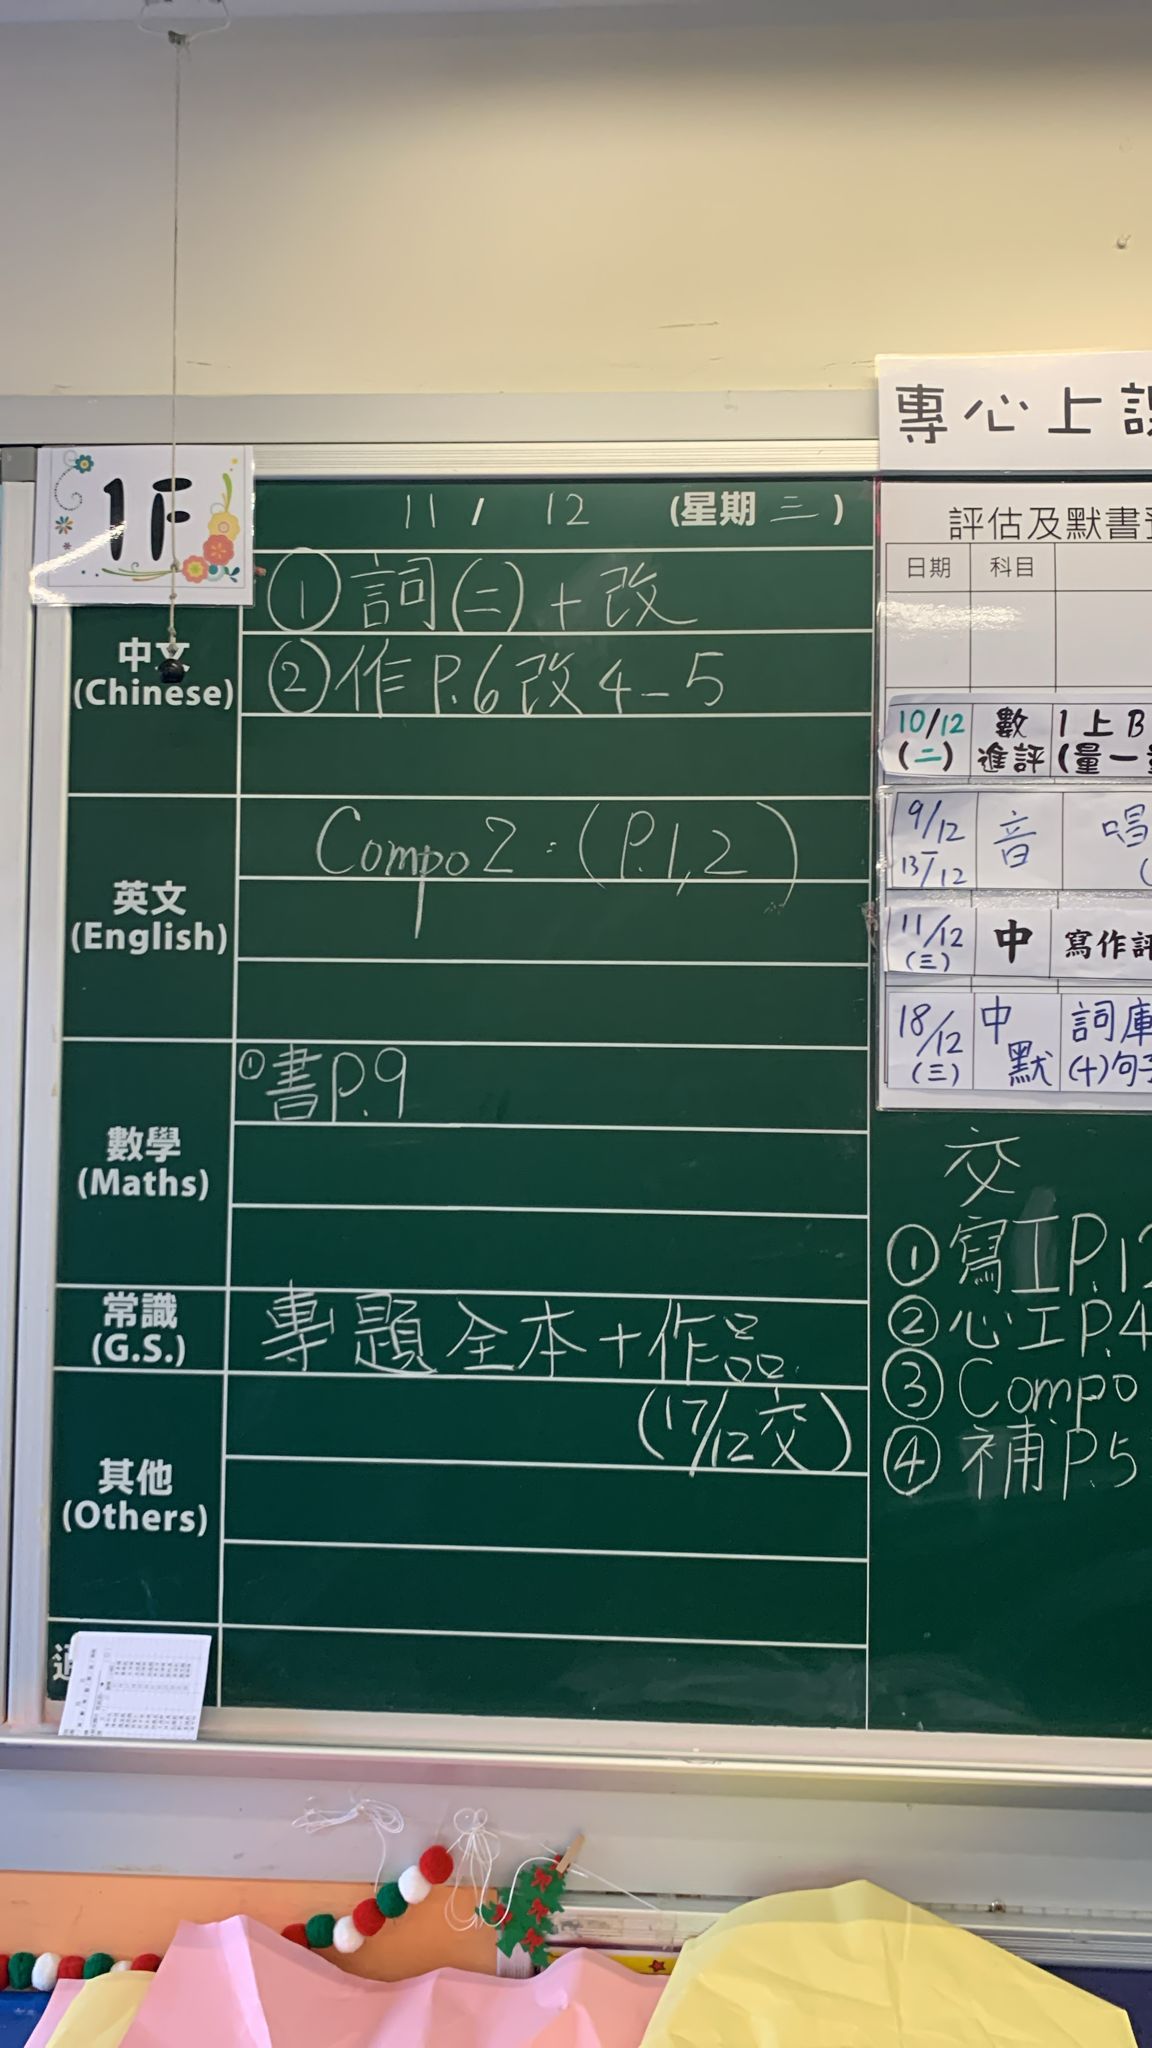 專心上課
1F
11 / 12 (星期三)
中文
(Chinese)
① 詞(二)+改
② 作P.6改4-5
英文
(English)
Compo 2:(P.1,2)
數學
(Maths)
① 書P.9
常識
(G.S.)
專題全本+作品
(17/12交)
其他
(Others)
評估及默書
日期 科目
10/12 (二) 數 進評 1上B (量一
9/12 - 13/12 音 唱
11/12 (三) 中 寫作
18/12 (三) 中 默 詞庫 (十)句子
交
① 寫工P.12
② 心工P.4
③ Compo
④ 補P.5